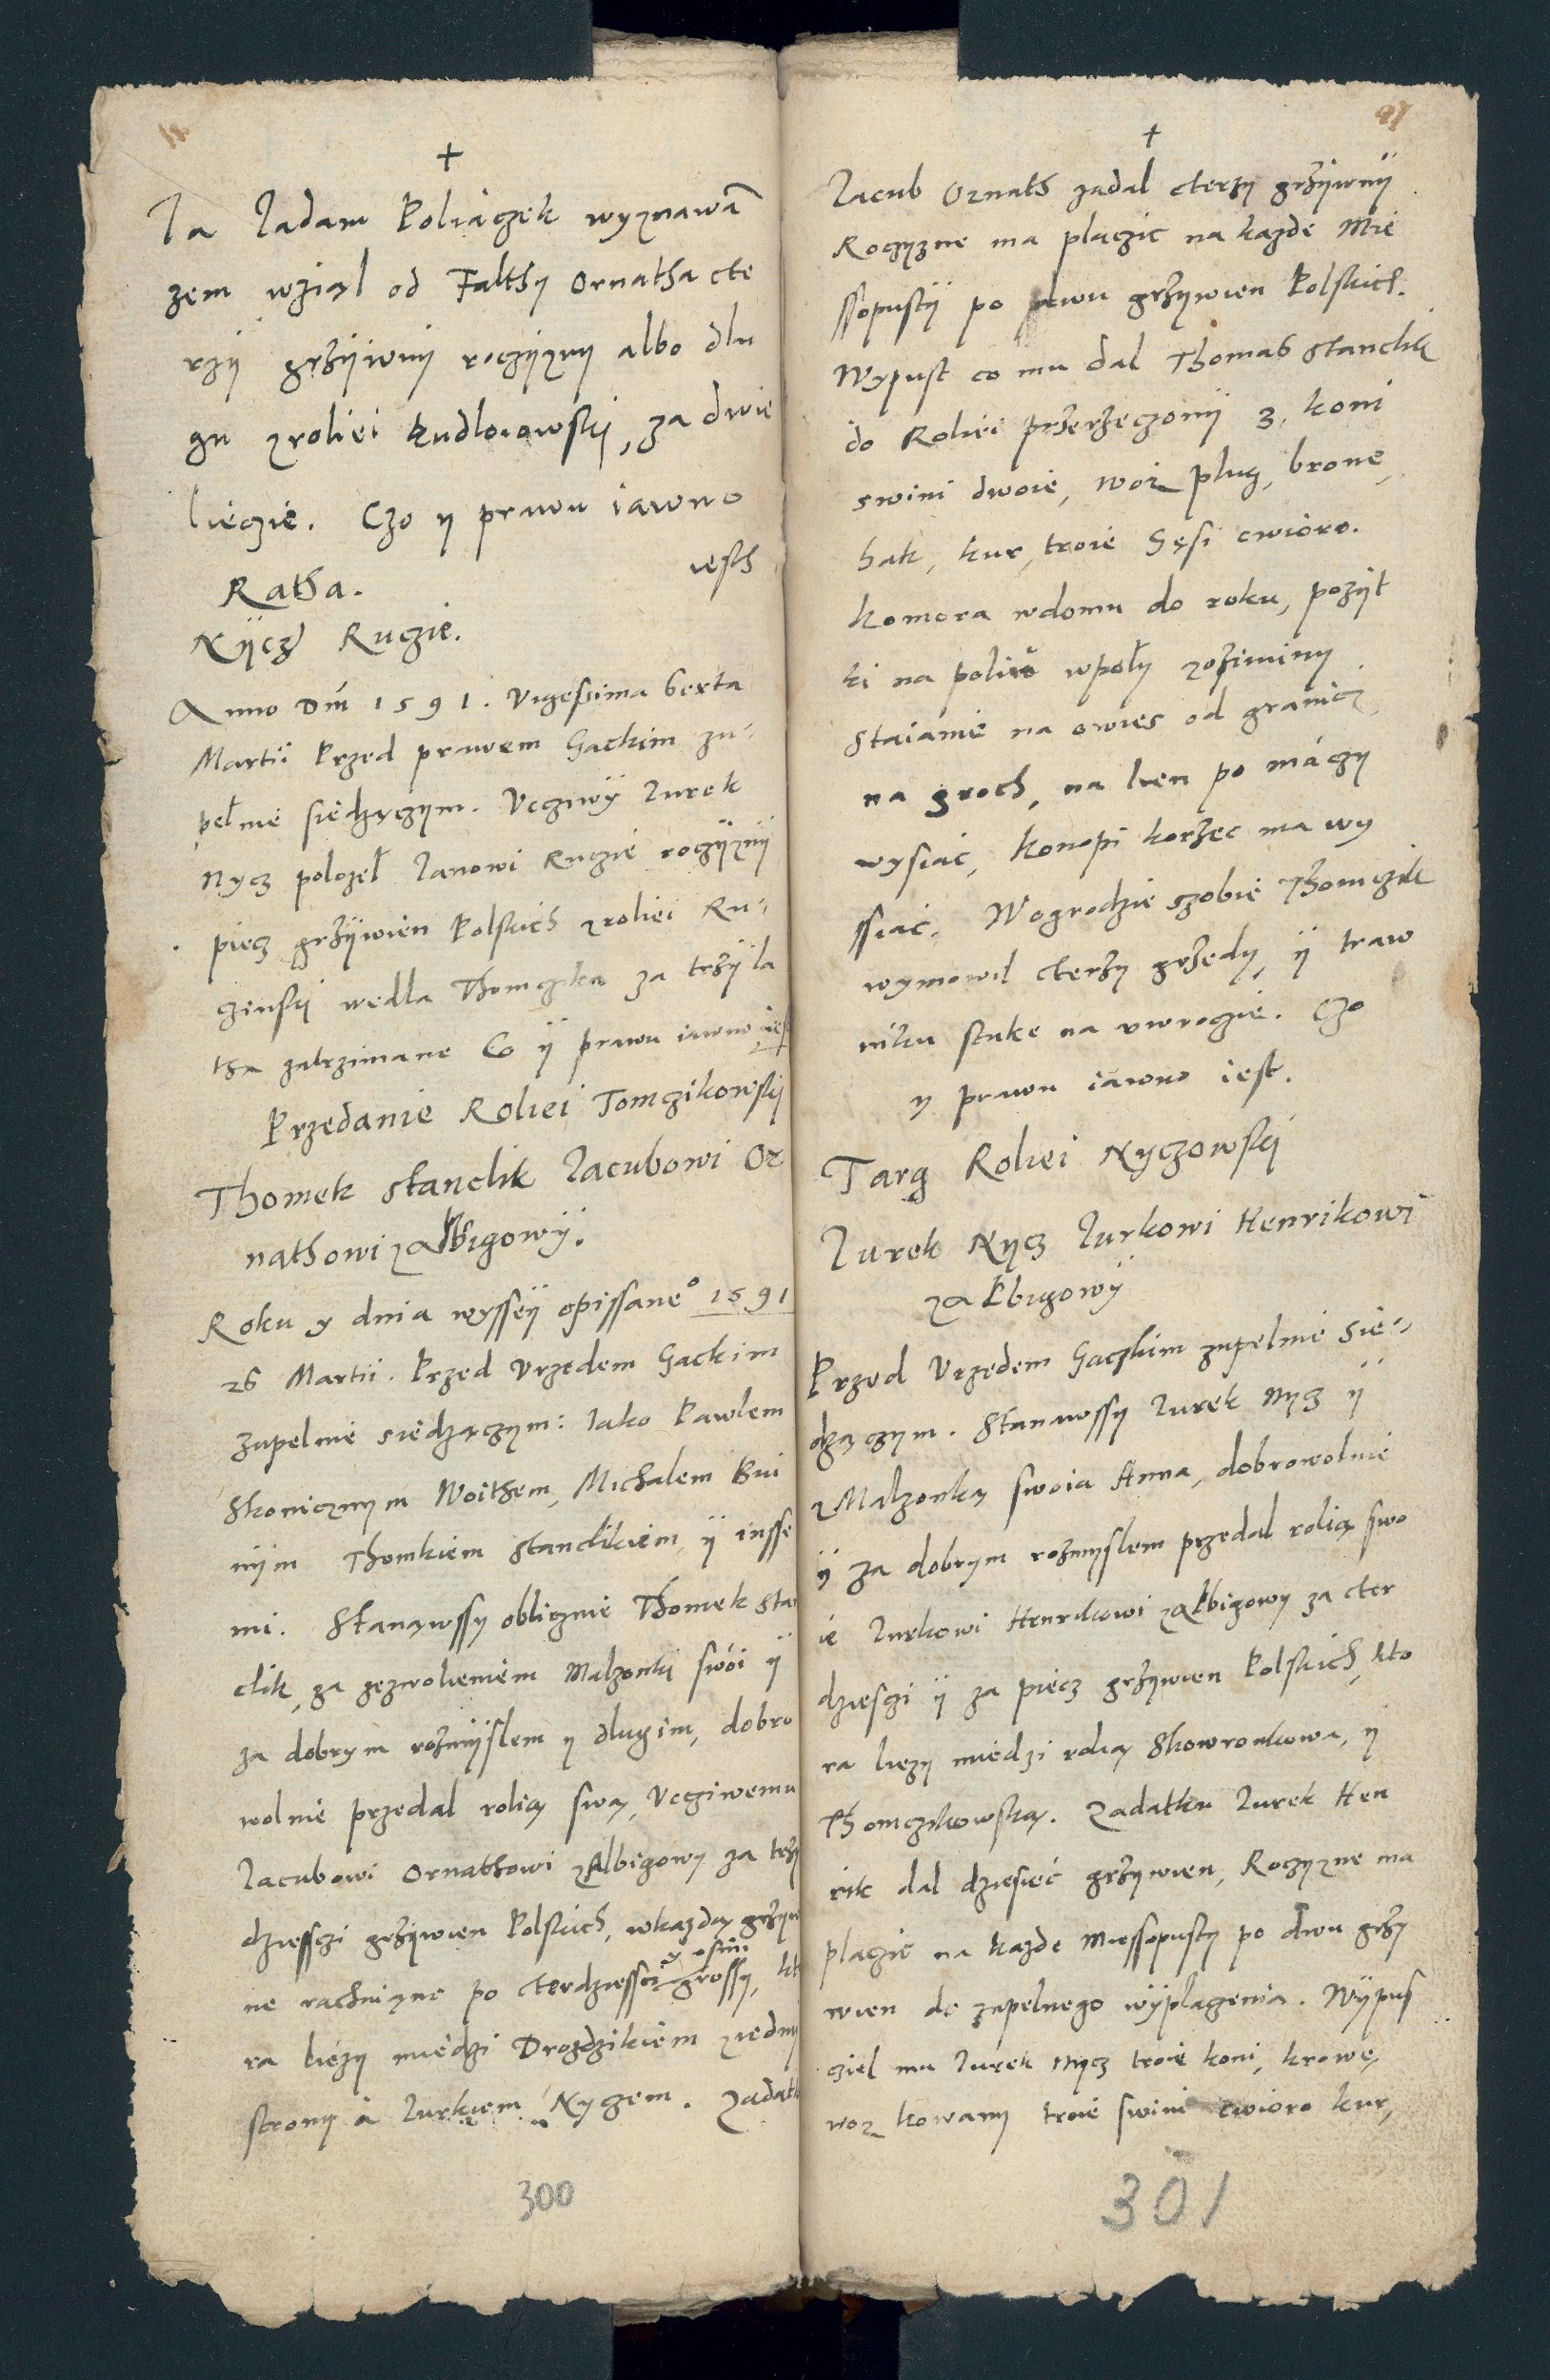 +
Ia Iadam Poliaczek wyznawã
zem wziąl od Falthy Ornatha cte
rzÿ grzÿiwny roczÿzny albo dlu
gu zroliei kudlowowskÿ, za dwie
lieczie. Czo y prawu iawno
iesth
Ratha.
Nÿcz Ruczie.
Anno Dm̃ 1591. Vigesima Sexta
Martii Przed prawem Gackim zu-
pełnie siedzączym. Vcziwÿ Iurek
Nycz polozeł Ianowi Ruczie roczÿznÿ
piecz grzÿwien Polskich zroliei Ru-
czinskÿ wedla Thomczika za trzÿ la
tha zatrzimane Co ÿ prawu iawno ies
Przedanie Roliei Tomczikowskÿ
Thomek stanclik Iacubowi Or
nathowi zAlbigowÿ.
Roku y dnia wysseÿ opissane° 1591
26 Martii. Przed Vrzedem Gackim
zupelnie siedzączym: Iako Pawlem
Skonicznym Woithem, Michalem Bui
nÿm Thomkiem Stanclikiem, ÿ insse
mi. Stanąwssy oblicznie Thomek Stan
clik, za zezwoleniem Malzonki swoi ÿ
za dobrym rozmÿslem y dlugim, dobro
wolnie przedal rolią swą, Vcziwemu
Iacubowi Ornathowi zAlbigowy za trzÿ
dziessczi grzÿwien Polskich, wkazdą grzÿw
y osmi
ne rachuiąnc po cterdziessci grossy, kt
ra liezy miedzi Drozdzikiem ziedny
strony à Iurkiem Nyczem. Zadatk
300
+
Iacub Ornath zadal cterzy grzÿwnÿ
Roczyzne ma placzic na kazde Mie
ssopustÿ po dwu grzÿwien Polskich.
Wypust co mu dal Thomas stanclik
do Roliei przerzeczony 3, koni
swini dwoie, woz plug, brone,
hak, kur, troie Gęsi cwioro.
komora wdomu do roku, pozÿt
ki na poliu wpoły zozimimy
Staianie na owies od granicz,
na groch, na lien po máczy
wysiac, Konopi korzec ma wy
ssiac. Wogrodzie szobie Thomczik
wymowil cterzy grzedy, ÿ traw
niku stuke na uwrogie. Czo
y prawu iawno iest.
Targ Roliei Nyczowskÿ
Iurek Nycz Iurkowi Henrikowi
zAlbigowÿ
Przed Vrzędem Gaczkim zupelnie sie-
dzączym. Stanąwssy Iurek Nycz ÿ
zMalzonką swoia Anna, dobrowolnie
ÿ za dobrym rozmyslem przedal rolią swo
ie Iurkowi Henrikowi zAlbigowy za cter
dziesczi ÿ za piecz grzywien Polskich, kto
ra liezy miedzi rolią Skowronkowa, ÿ
Thomczikowską. Zadatku Iurek Hen
rik dal dziesiec grzywien, Roczyzne ma
placzic na kazde Miessopusty po dwu grzy
wien do zupelnego wÿplaczenia. Wÿpus
cziel mu Iurek Nycz troie koni, krowe,
woz kowany troie swini cwioro kur,
301